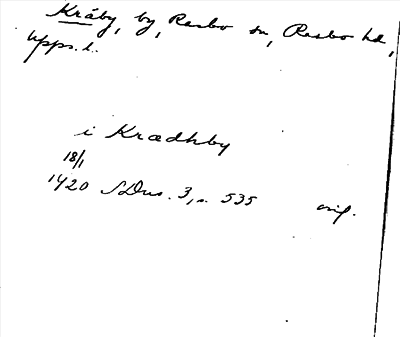 Kråby, by, Rasbo sn, Rasbo hd,
Upps. l.
i Krædhby
18/1
1420 SDns. 3, s. 535 orig.